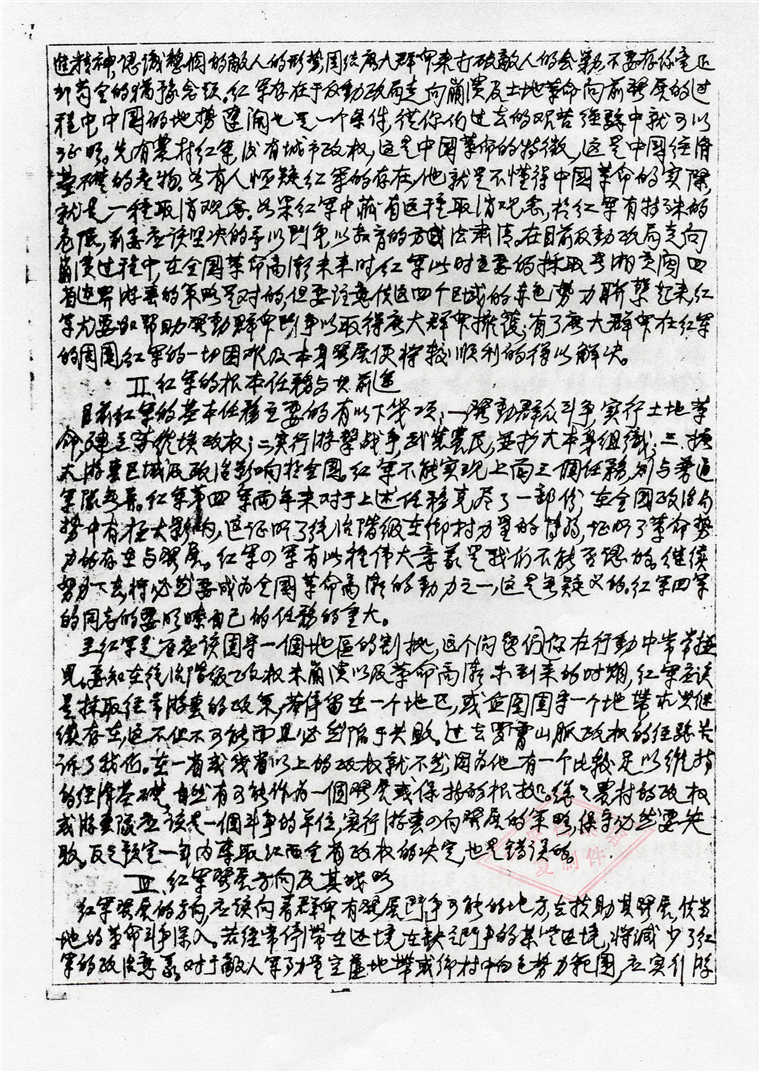 进精神认识整个的敌人的形势团结广大群众来打破敌人的会剿不要存你重返
到前途的犹豫念头。红军存在于反动政局走向崩溃及土地革命向前发展的过
程中中国的地势辽阔也是一个条件,从你们过去的艰苦经验中就可以
证明。先有农村红军,后有城市政权,这是中国革命的特征,这是中国经济
基础的产物。如有人怀疑红军的存在,他就是不懂得中国革命的实际,
就是一种取消观念。如果红军中藏有这种取消观念,于红军有特殊的
危险,前委应该坚决的予以斗争,以教育的方式法肃清。在目前反动政局走向
崩溃过程中,在全国革命高潮未来时,红军此时主要的采取粤湘贛闽四
省边界游击的策略是对的,但要注意使这四个区域的赤色势力联系起来,红
军尤要加帮助发动群众斗争以取得广大群众拥护;有了广大群众在红军
的周围,红军的一切困难及本身发展便将较顺利的得以解决。
Ⅱ、红军的根本任务与其前途
目前红军的基本任务主要的有以下几项:一、发动群众斗争,实行土地革
命,建立苏维埃政权;二、实行游击战争,武装农民,并扩大本身组织;三、扩
大游击区域及政治影响于全国。红军不能实现上面三个任务,则与普通
军队无异。红军第四军两年来对于上述任务克尽了一部份,在全国政治局
势中有极大影响,这证明了统治阶级在乡村力量的薄弱,证明了革命势
力的存在与发展。红军四军有此种伟大意义是我们不能否认的。继续
努力下去将必然要成为全国革命高潮的动力之一,这是无疑义的。红军四军
的同志的要明瞭自己的任务的重大。
至红军是否应该固守一个地区的割据,这个问题仍存在行动中常常遇
见,要知在统治阶级政权未崩溃以及革命高潮未到来的时期,红军应该
是採取经常游击的政策,若停留在一个地区,或企图固守一个地带求其继
续存在,这不但不可能而且必然陷于失败。过去罗霄山脉政权的经验告
诉了我们。在一省或几省以上的政权就不然,因为他有一个比较足以维持
的经济基础,自然有可能作为一个发展或保持的根据。总之农村的政权
或游击队应该是一个斗争的单位,实行游击的向发展的策略,保守必然要失
败。反之预定一年内夺取江西全省政权的决定,也是错误的。
Ⅲ、红军发展方向及其战略
红军发展的方向,应该向着群众有发展斗争可能的地方去扶助其发展,使当
地的革命斗争深入。若经常停滞在边境,在缺乏斗争的某些区境,将减少了红
军的政治意义。对于敌人军力量空虚地带或乡村中白色势力范围,应实行游